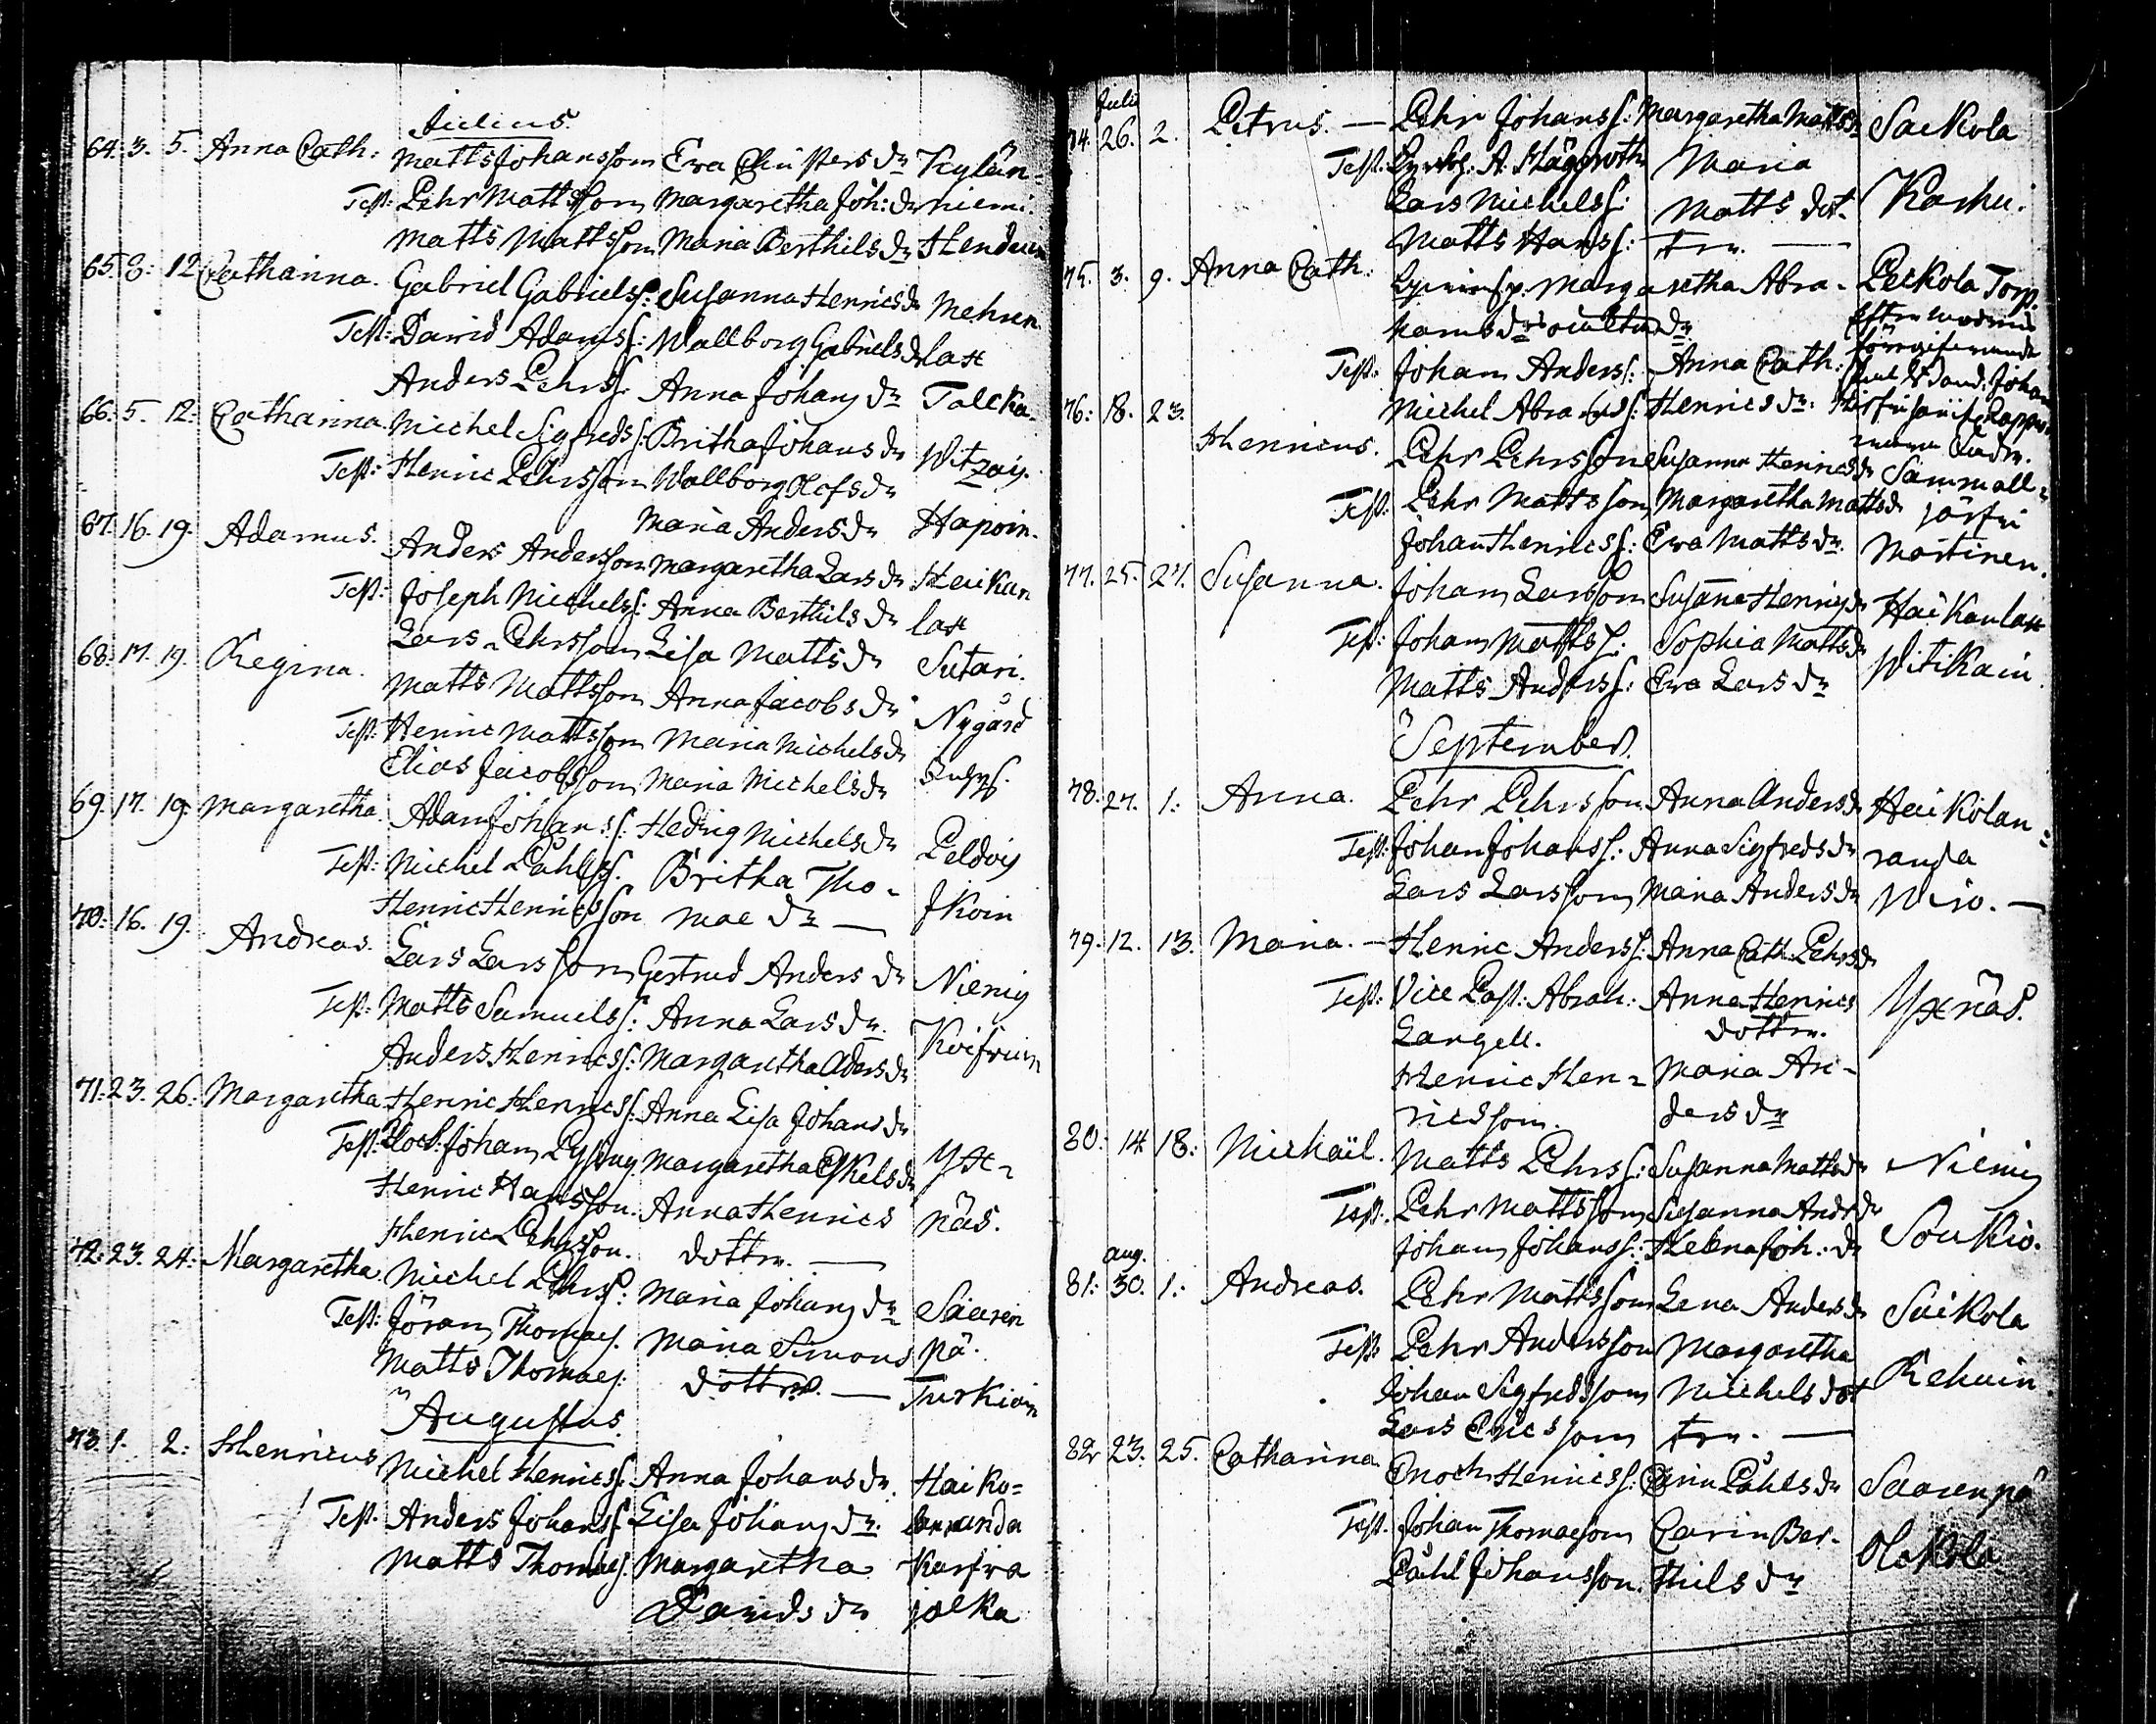 Julius.
64. 3. 5. Anna Cath: Matts Johansson Ewa Christersdr Kylän-
Test: Pehr Mattsson Margaretha Joh: dr niemi.
Matts Mattsson Maria Berthils dr Hendun
65. 8: 12 Catharina. Gabriel Gabrielss: Susanna Henricsdr Mehren
Test: David Adamss: Wallborg Gabriels dr lax
Anders Pehrss. Anna Johans dr Talcka-
66. 5. 12: Catharina. Michel Sigfredss: Britha Johans dr Witzais.
Test: Henric Pehrsson Wallborg Olofs dr
Maria Anders dr Hapoin.
67. 16. 19. Adamus. Anders Andersson Margaretha Lars dr Heikan
Test: Joseph Michelss: Anna Berthils dr lax
Lars Pehrsson Lisa Matts dr Sutari.
68. 17. 19. Regina. Matts Mattsson Anna Jacobs dr Nygård
Test: Henric Mattsson Maria Michels dr
Elias Jacobsson Maria Michels dr
69. 17. 19. Margaretha. Adam Johanss: Hedvig Michels dr Peldois
Test: Michel Påhlss. Britha Tho-
Henric Henricsson mae dr — Jkoin
70. 16. 19. Andreas. Lars Larsson Gertrud Anders dr Niemis
Test: Matts Samuelss: Anna Lars dr.
Anders Henricss: Margaretha Aders dr
71: 23. 26: Margaretha Henric Henricss: Anna Lisa Johans dr
Test: Johan Margaretha Eskels dr Yx-
Henric Hansson. Anna Henrics näs.
Henric Pehrsson. dottr. —
72: 23. 24: Margaretha. Michel Pehrss: Maria Johans dr Saaren
Test: Jöran Thomaes. Maria Simons pä.
Matts Thomaes. dottr. — Turkion
Augustus.
73. 1. 2: Henricus Michel Henricss: Anna Johans dr. Haiko=
Test. Anders Johanss. Lisa Johans dr. lanranda
Matts Thomaes. Margaretha Karfva
Davids dr jalka
Julii
74. 26. 2. Petrus. — Pehr Johanss: Margaretha Mattsdr Saikola
Test: A. Hägroth Maria
Lars Michelss: Matts dot- Karhu.
Matts Hanss: trr. —
75. 3. 9. Anna Cath: Margaretha Abra- Peikola Torp.
hams dr
Test: Johan Anderss: Anna Cath:
76: 18. 23. Michel Abrahss: Henrics dr.
Henricus. Pehr Pehrsson Susanna Henricsdr Sammall-
Test: Pehr Mattsson Margaretha Mattsdr järfvi
Johan Henricss: Ewa Matts dr. Martinen.
77. 25. 27. Susanna. Johan Larsson Susanna Henrics dr Haikanlax
Test: Johan Mattss: Sophia Mattsdr
Matts Anderss: Ewa Lars dr Witikain
September.
78. 27. 1: Anna. Pehr Pehrsson Anna Andersdr Haikolan=
Test: Johan Johanss: Anna Sigfreds dr randa
Lars Larsson Maria Anders dr Wiro. —
79. 12. 13. Maria. — Henric Anderss: Anna Cath. Pehrsdr
Test: Vice Past: Abrah: Anna Henrics Yxnäs.
Langell. dottr.
Henric Hen- Maria An-
ricsson. ders dr
80. 14 18: Michaël. Matts Pehrss: Susanna Matts dr Niemis
Test. Pehr Mattsson Susanna Andr dr
Johan Johanss: Helena Joh: dr Soukio.
aug.
81: 30. 1: Andreas. Pehr Mattsson Lena Anders dr Saikola
Test: Pehr Andersson Margaretha
Johan Sigfredsson Michels dot Rehuin
Lars Ericsson trr. —
82 23. 25. Catharina. Enoch Henricss: Carin Påhls dr Saarenpä
Test. Johan Thomaeson Carin Ber-
Påhl Johansson. thils dr Olakola